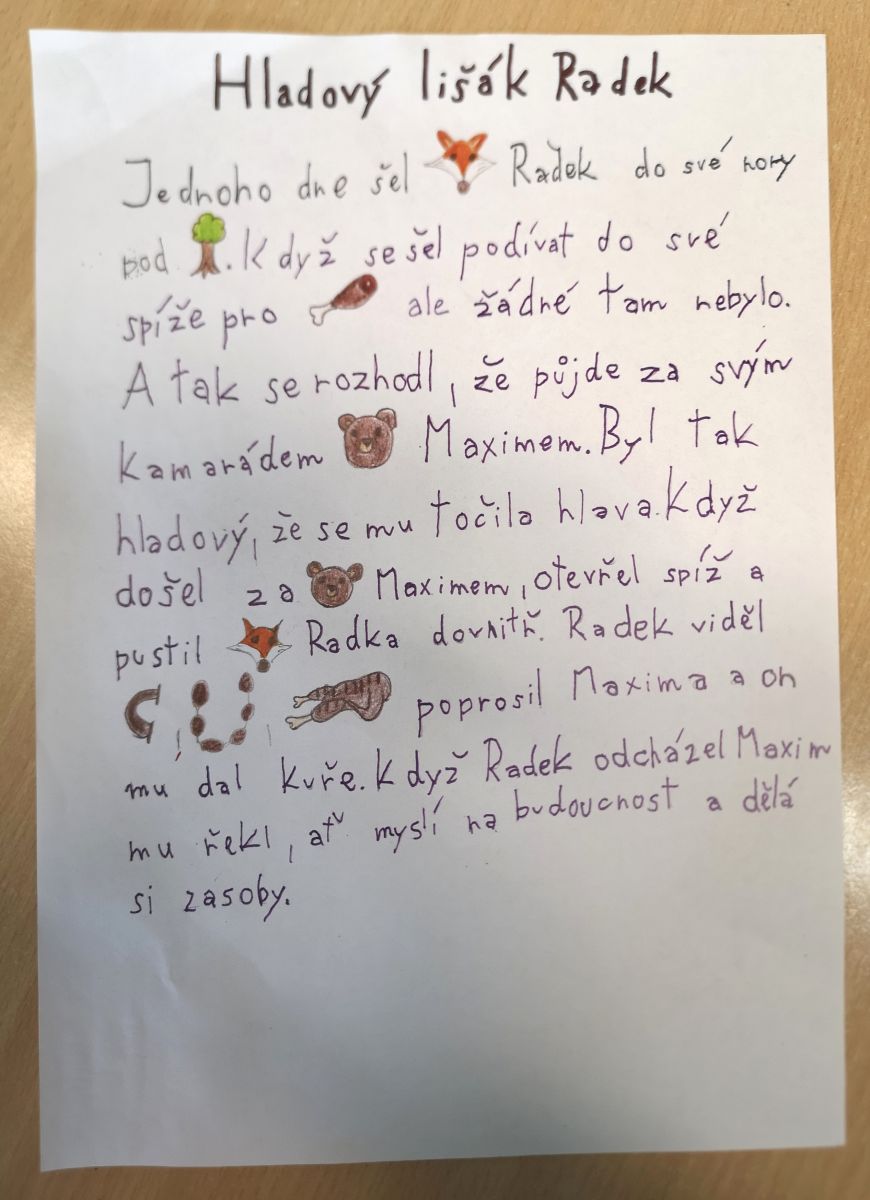 Hladový lišák Radek
Jednoho dne šel Radek do své nory
pod . Když se šel podívat do své
spíže pro ale žádné tam nebylo.
A tak se rozhodl, že půjde za svým
kamarádem Maximem. Byl tak
hladový, že se mu točila hlava. Když
došel za Maximem, otevřel spíž a
pustil Radka dovnitř. Radek viděl
, , poprosil Maxima a on
mu dal kuře. Když Radek odcházel Maxim
mu řekl, ať myslí na budoucnost a dělá
si zasoby.